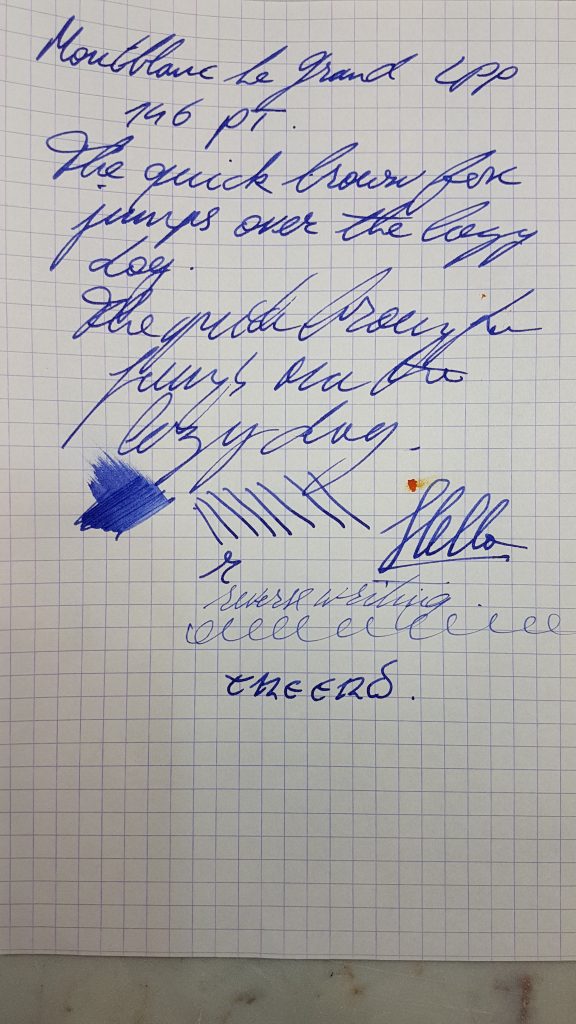 Montblanc Le Grand LPP
146 PT.
The quick brown fox
jumps over the lazy
dog.
The quick brown fox
jumps over the
lazy dog.
Hello
r
reverse writing
CHEERS.